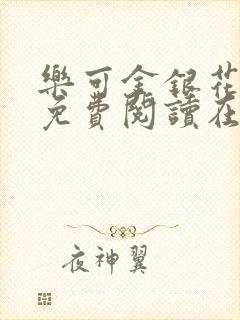 樂可金銀花
免費閱讀在
夜神翼